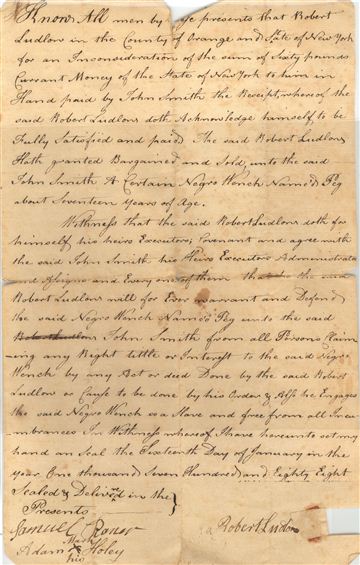 Know All men by These presents that Robert
Ludlow in the County of Orange and State of New York
for an Inconsideration of the sum of Sixty pounds
Currant Money of the State of New York to him in
Hand paid by John Smith the Receipt, whereof the
said Robert Ludlow doth Acknowledge himself to be
Fully Satisfied and paid, The said Robert Ludlow
Hath granted Bargained and Sold, unto the said
John Smith A Certain Negro Wench Named Peg
about Seventeen years of Age.
Withness that the said Robert Ludlow doth for
himself his heirs Executors; Covenant and agree with
the said John Smith his Heirs Executors Administrators
and Assigns and Every one of them that the
Robert Ludlow will for Ever warrant and Defend
the said Negro Wench Named Peg unto the said
John Smith from all Persons Claim
-ing any Right tittle or Interest to the said Negro
Wench by any Act or deed Done by the said Robert
Ludlow or Cause to be done by his Order & Also he Engages
the said Negro Wench is a Slave and free from all Incu
-mbrances In Withness whereof I have hereunto set my
hand an Seal the Sixteenth Day of January in the
year One thousand Seven Hundred and Eighty Eight
Sealed & Deliver'd in the
Presents
Samuel
Adam his Mark Holey
Robert Ludlow